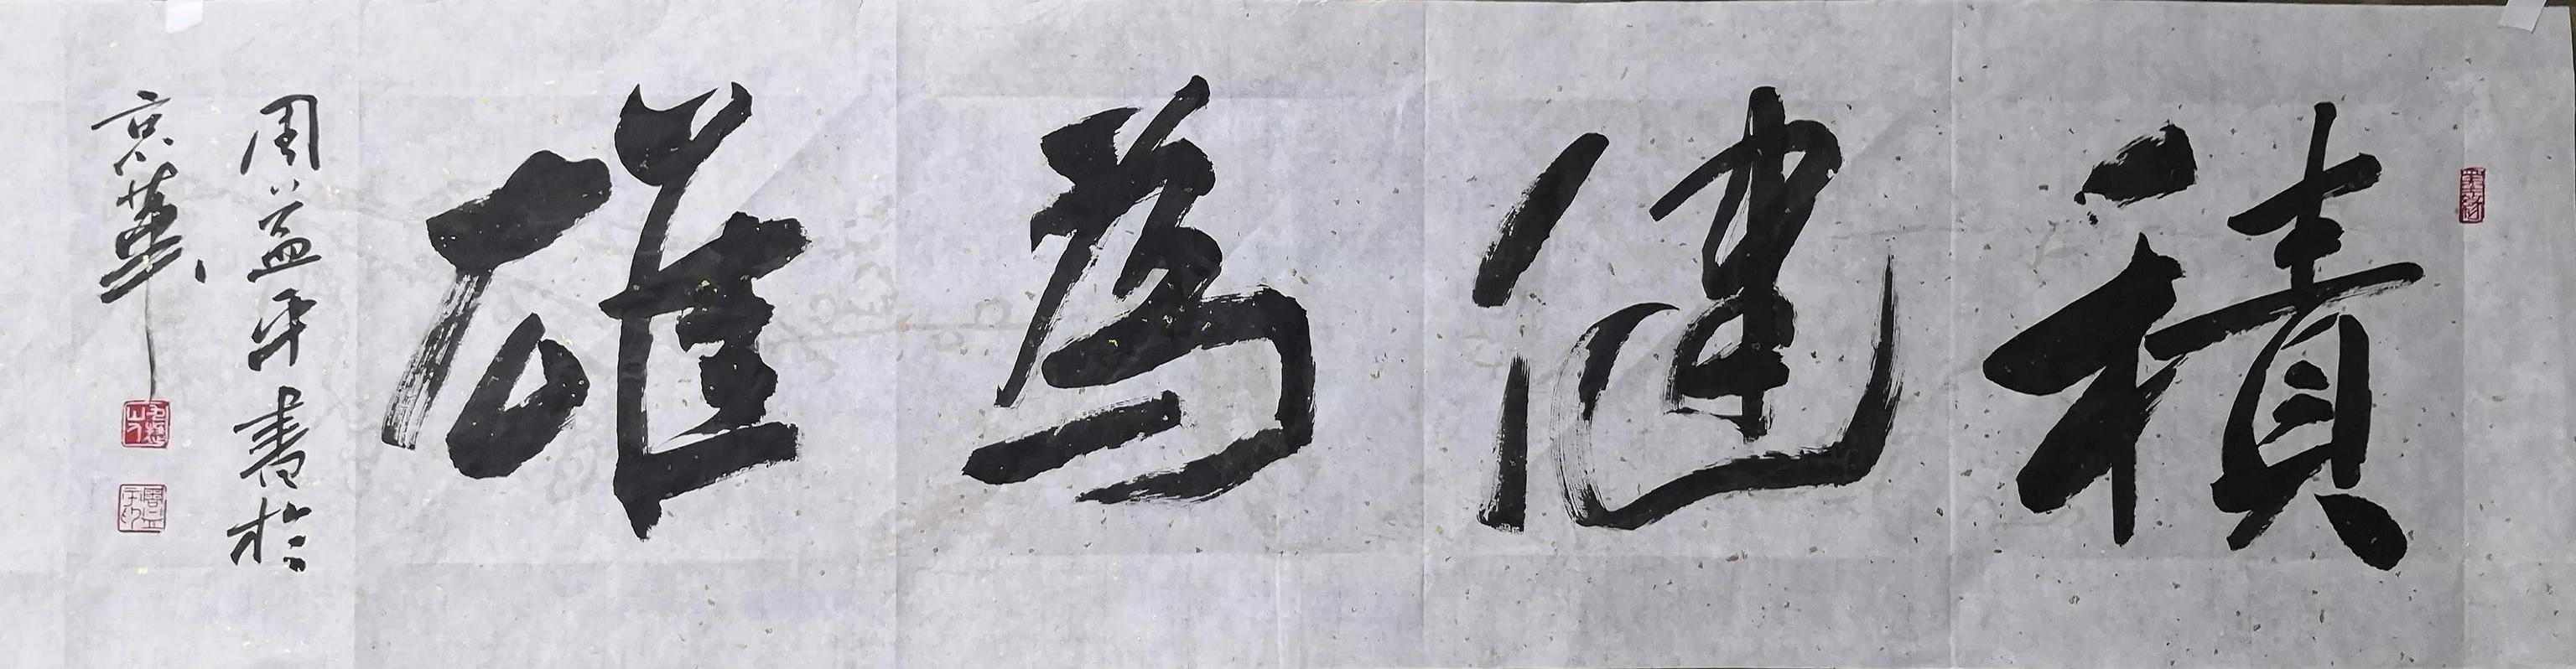 積健為雄
周益平書於
京華